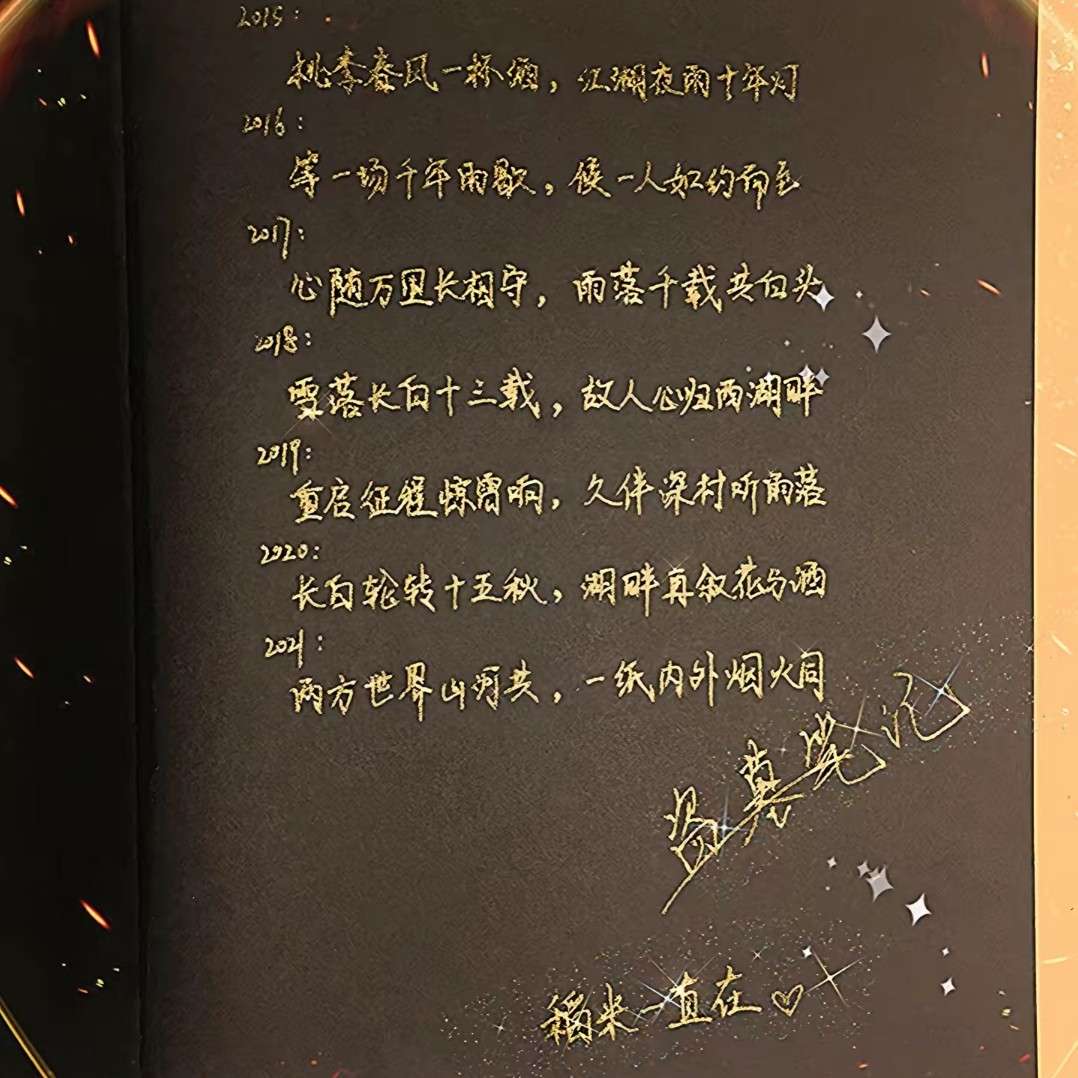 2015：
桃李春风一杯酒，江湖夜雨十年灯
2016：
等一场千年雨歇，候一人如约而至
2017：
心随万里长相守，雨落千载共白头
2018：
雪落长白十三载，故人心归西湖畔
2019：
重启征程惊雷响，久伴深村听雨落
2020：
长白轮转十五秋，湖畔再叙花与酒
2021：
两方世界山河共，一纸内外烟火同
盗墓笔记
稻米一直在♡